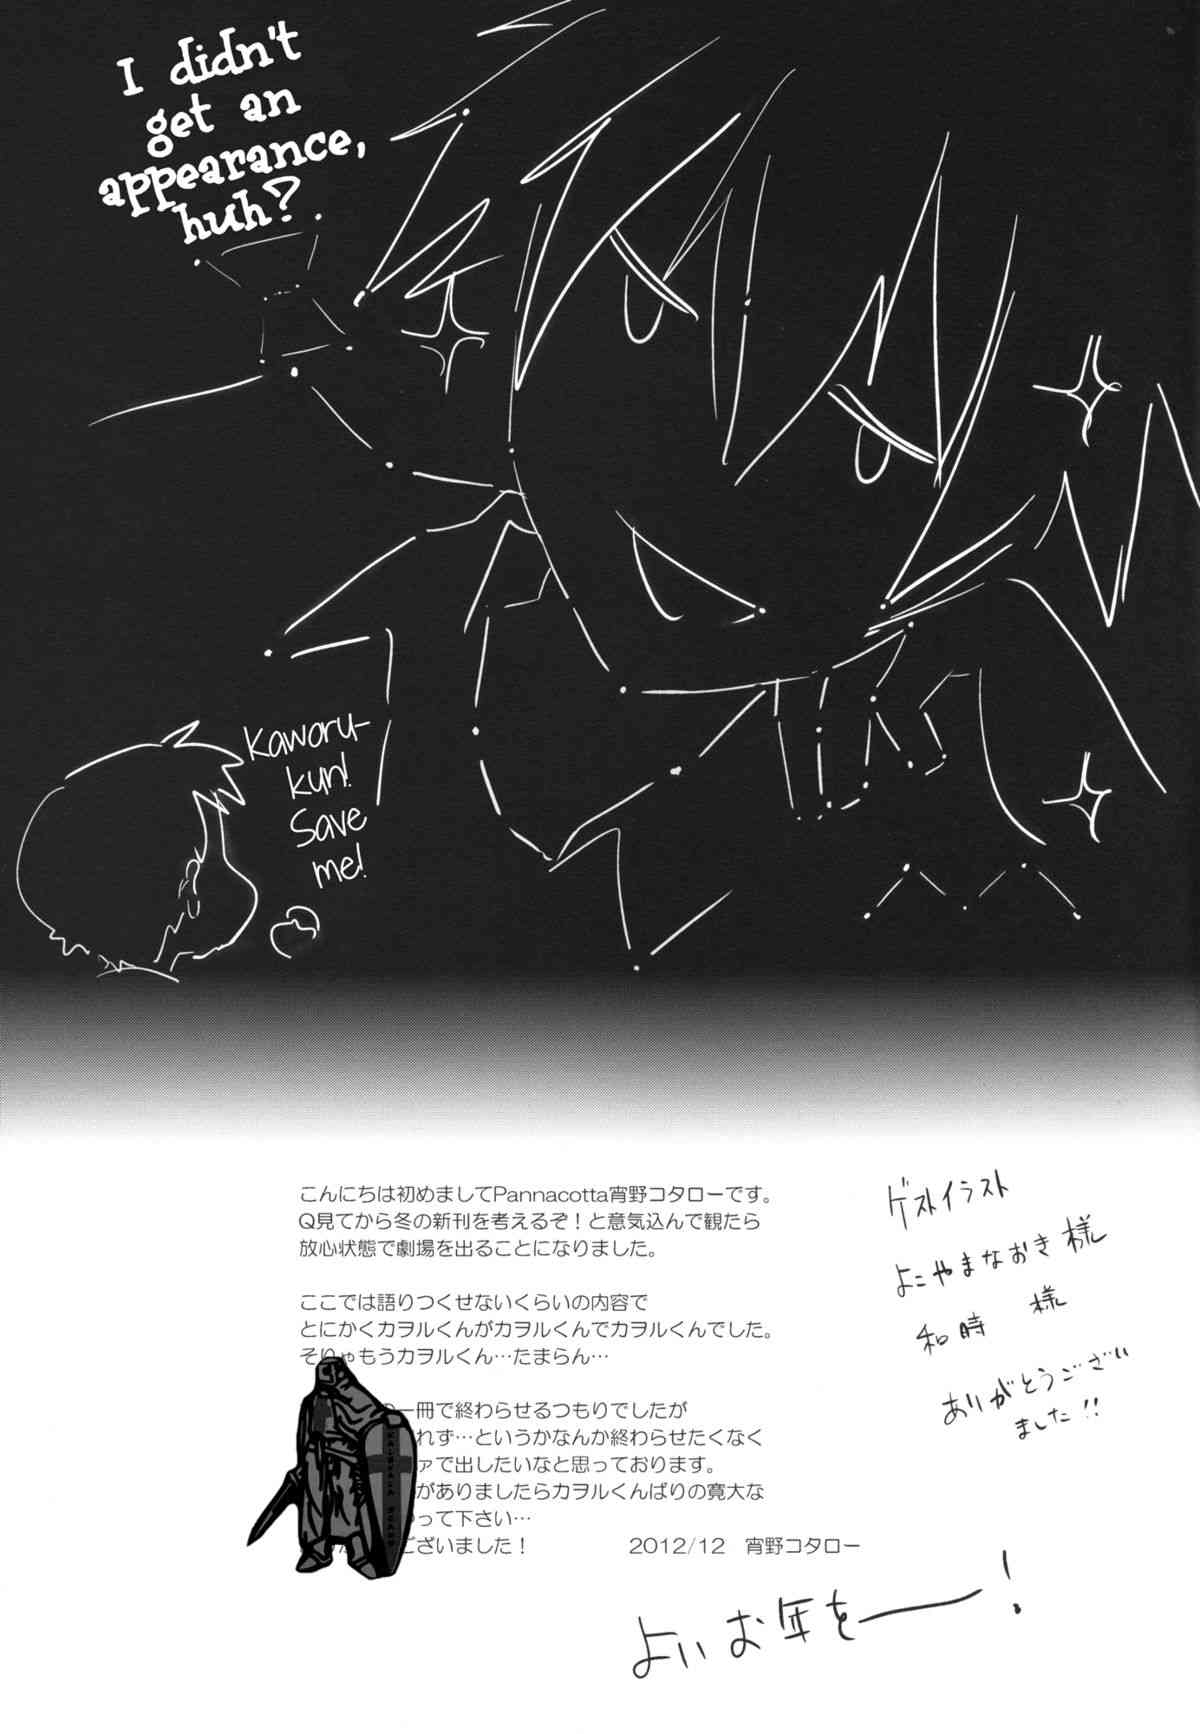 I didn't
get an
appearance,
huh?
Kaworu-
kun!
Save
me!
こんにちは初めましてPannacotta宵野コタローです。
Q見てから冬の新刊を考えるぞ！と意気込んで観たら
放心状態で劇場を出ることになりました。
ここでは語りつくせないくらいの内容で
とにかくカヲルくんがカヲルくんでカヲルくんでした。
そりゃもうカヲルくん…たまらん…
一冊で終わらせるつもりでしたが
れず…というかなんか終わらせたくなく
ァで出したいなと思っております。
がありましたらカヲルくんばりの寛大な
って下さい…
ございました！
2012/12 宵野コタロー
ゲストイラスト
よこやまなおき様
和時 様
ありがとうござい
ました!!
よいお年をー！